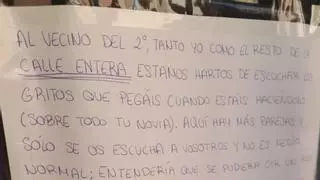 AL VECINO DEL 2º, TANTO YO COMO EL RESTO DE
CALLE ENTERA ESTAMOS HARTOS DE ESCUCHAR
GRITOS QUE PEGÁIS CUANDO ESTAIS HACIENDOLO
(SOBRE TODO TU NOVIA). AQUÍ HAY MAS PAREJAS Y
SÓLO SE OS ESCUCHA A VOSOTROS Y NO ES
NORMAL; ENTENDERÍA QUE SE PUDIERA OIR UN